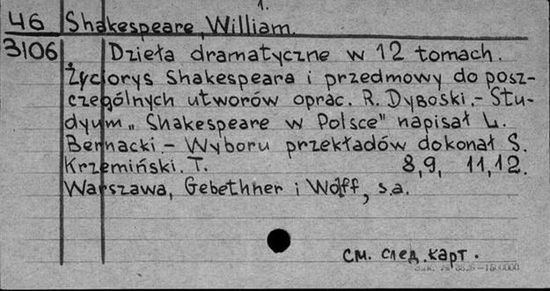 1.
46 Shakespeare, William.
3106 Dzieła dramatyczne w 12 tomach.
Życiorys Shakespeara i przedmowy do posz-
czególnych utworów oprac. R. Dyboski.- Stu-
dyum „Shakespeare w Polsce" napisał L.
Bernacki.- Wyboru przekładów dokonał S.
Krzemiński. T. 8,9, 11,12.
Warszawa, Gebethner i Wolff, s.a.
см. след. карт.